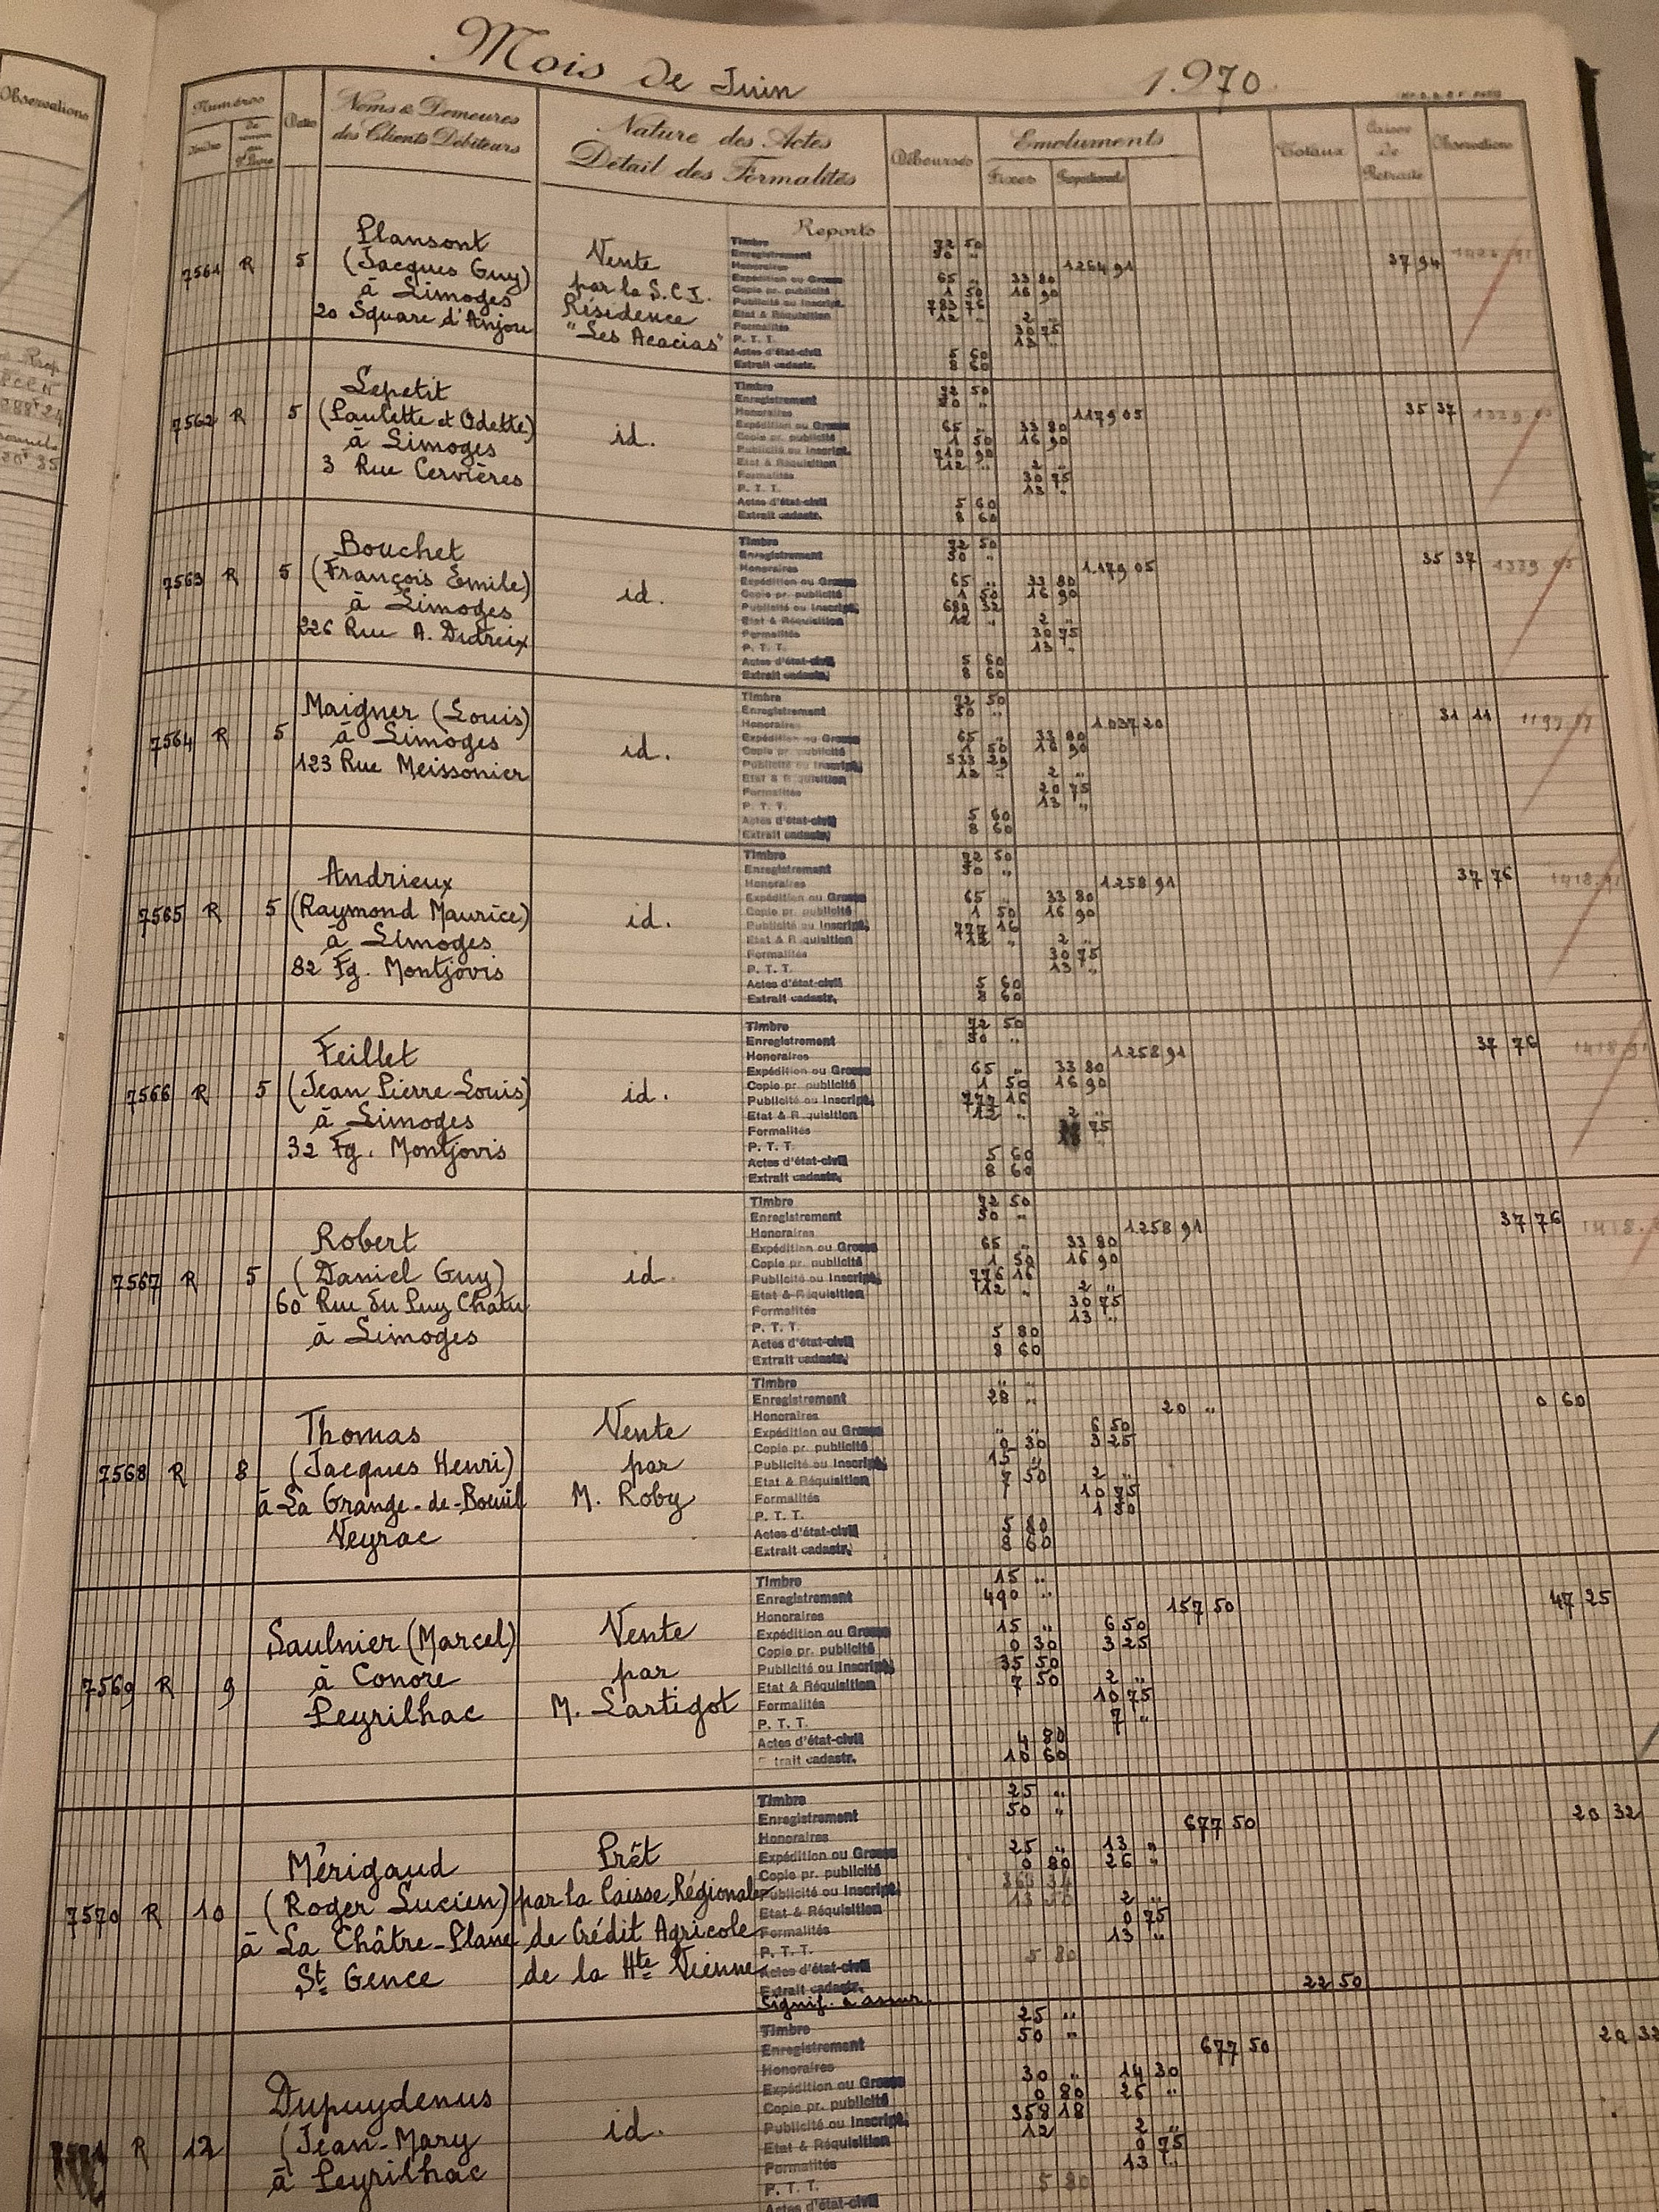 Mois de Juin 1.970
Observations
Numéros
Noms & Demeures
des Clients Débiteurs
Nature des Actes
Détail des Formalités
Déboursés
Emoluments
Fixes
Totaux
Caisse
de
Retraite
Observations
Reports
7561 R 5
Plansont
(Jacques Guy)
à Limoges
20 Square d'Anjou
Vente
par la S.C.I.
Résidence
"Les Acacias"
Timbre 72 50
Enregistrement 50 "
Honoraires 1264 91 37 94
Expédition ou Grosse 65 " 33 80
Copie pr. publicité 1 50 16 90
Publicité ou Inscript. 783 76
Etat & Réquisition 12 " 2 "
Formalités 30 75
P. T. T. 13 "
Actes d'état-civil 5 60
Extrait cadastr. 8 60
7562 R 5
Lepetit
(Paulette et Odette)
à Limoges
3 Rue Cervières
id.
Timbre 72 50
Enregistrement 50 "
Honoraires 1179 05 35 37
Expédition ou Grosse 65 " 33 80
Copie pr. publicité 1 50 16 90
Publicité ou Inscript. 710 90
Etat & Réquisition 12 " 2 "
Formalités 30 75
P. T. T. 13 "
Actes d'état-civil 5 60
Extrait cadastr. 8 60
7563 R 5
Bouchet
(François Emile)
à Limoges
226 Rue A. Dutreix
id.
Timbre 72 50
Enregistrement 50 "
Honoraires 1.179 05 35 37
Expédition ou Grosse 65 " 33 80
Copie pr. publicité 1 50 16 90
Publicité ou Inscript. 689 32
Etat & Réquisition 12 " 2 "
Formalités 30 75
P. T. T. 13 "
Actes d'état-civil 5 60
Extrait cadastr. 8 60
7564 R 5
Maigner (Louis)
à Limoges
123 Rue Meissonier
id.
Timbre 72 50
Enregistrement 50 "
Honoraires 1.037 20 31 11
Expédition ou Grosse 65 " 33 80
Copie pr. publicité 1 50 16 90
Publicité ou Inscript. 533 29
Etat & R quisition 12 " 2 "
Formalités 20 75
P. T. T. 13 "
Actes d'état-civil 5 60
Extrait cadastr. 8 60
7565 R 5
Andrieux
(Raymond Maurice)
à Limoges
82 Fg. Montjovis
id.
Timbre 72 50
Enregistrement 50 "
Honoraires 1.258 91 37 76
Expédition ou Grosse 65 " 33 80
Copie pr. publicité 1 50 16 90
Publicité ou Inscript. 777 16
Etat & R quisition 12 " 2 "
Formalités 30 75
P. T. T. 13 "
Actes d'état-civil 5 60
Extrait cadastr. 8 60
7566 R 5
Feillet
(Jean Pierre Louis)
à Limoges
32 Fg. Montjovis
id.
Timbre 72 50
Enregistrement 50 "
Honoraires 1258 91 37 76
Expédition ou Grosse 65 " 33 80
Copie pr. publicité 1 50 16 90
Publicité ou Inscript. 777 16
Etat & R quisition 12 " 2 "
Formalités 75
P. T. T.
Actes d'état-civil 5 60
Extrait cadastr. 8 60
7567 R 5
Robert
(Daniel Guy)
60 Rue du Puy Chatu
à Limoges
id.
Timbre 72 50
Enregistrement 50 "
Honoraires 1.258 91 37 76
Expédition ou Grosse 65 " 33 80
Copie pr. publicité 1 50 16 90
Publicité ou Inscript. 776 16
Etat & Réquisition 12 " 2 "
Formalités 30 75
P. T. T. 13 "
Actes d'état-civil 5 80
Extrait cadastr. 8 60
7568 R 8
Thomas
(Jacques Henri)
à La Grange-de-Boeuil
Veyrac
Vente
par
M. Roby
Timbre " "
Enregistrement 28 "
Honoraires 20 " 0 60
Expédition ou Grosse " " 6 50
Copie pr. publicité 0 30 3 25
Publicité ou Inscript. 15 "
Etat & Réquisition 7 50 2 "
Formalités 10 75
P. T. T. 1 80
Actes d'état-civil 5 80
Extrait cadastr. 8 60
7569 R 9
Saulnier (Marcel)
à Conore
Peyrilhac
Vente
par
M. Lartigot
Timbre 15 "
Enregistrement 490 "
Honoraires 157 50 47 25
Expédition ou Grosse 15 " 6 50
Copie pr. publicité 0 30 3 25
Publicité ou Inscript. 35 50
Etat & Réquisition 7 50 2 "
Formalités 10 75
P. T. T. 7 "
Actes d'état-civil 4 80
E trait cadastr. 10 60
7570 R 10
Mérigaud
(Roger Lucien)
à La Châtre-Plane
St Gence
Prêt
par la Caisse Régionale
de Crédit Agricole
de la Hte Vienne
Timbre 25 "
Enregistrement 50 "
Honoraires 677 50 20 32
Expédition ou Grosse 25 " 13 "
Copie pr. publicité 0 80 26 "
Publicité ou Inscript.
Etat & Réquisition 13 50 2 "
Formalités 0 75
P. T. T. 13 "
Actes d'état-civil 5 80
Extrait cadastr.
Signif. à assur. 22 50
R 12
Dupuydenus
(Jean-Mary
à Peyrilhac
id.
Timbre 25 "
Enregistrement 50 "
Honoraires 677 50 20 32
Expédition ou Grosse 30 " 14 30
Copie pr. publicité 0 80 26 "
Publicité ou Inscript. 358 18
Etat & Réquisition 12 2 "
Formalités 0 75
P. T. T. 13 "
Actes d'état-civil 5 80